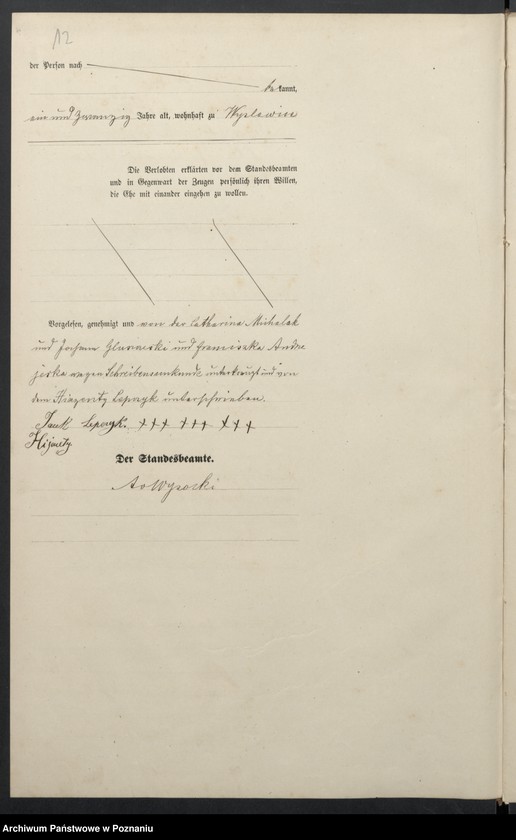 12
der Person nach
be kannt,
ein und zwanzig Jahre alt, wohnhaft zu
Die Verlobten erklärten vor dem Standesbeamten
und in Gegenwart der Zeugen persönlich ihren Willen,
die Ehe mit einander eingehen zu wollen.
Vorgelesen, genehmigt und von der Catharina Michalak
und Johann und Franciska Andre
wegen Schreibensunkunde unterkreuzt und von
dem unterschrieben.
+++ +++ +++
Der Standesbeamte.
Archiwum Państwowe w Poznaniu